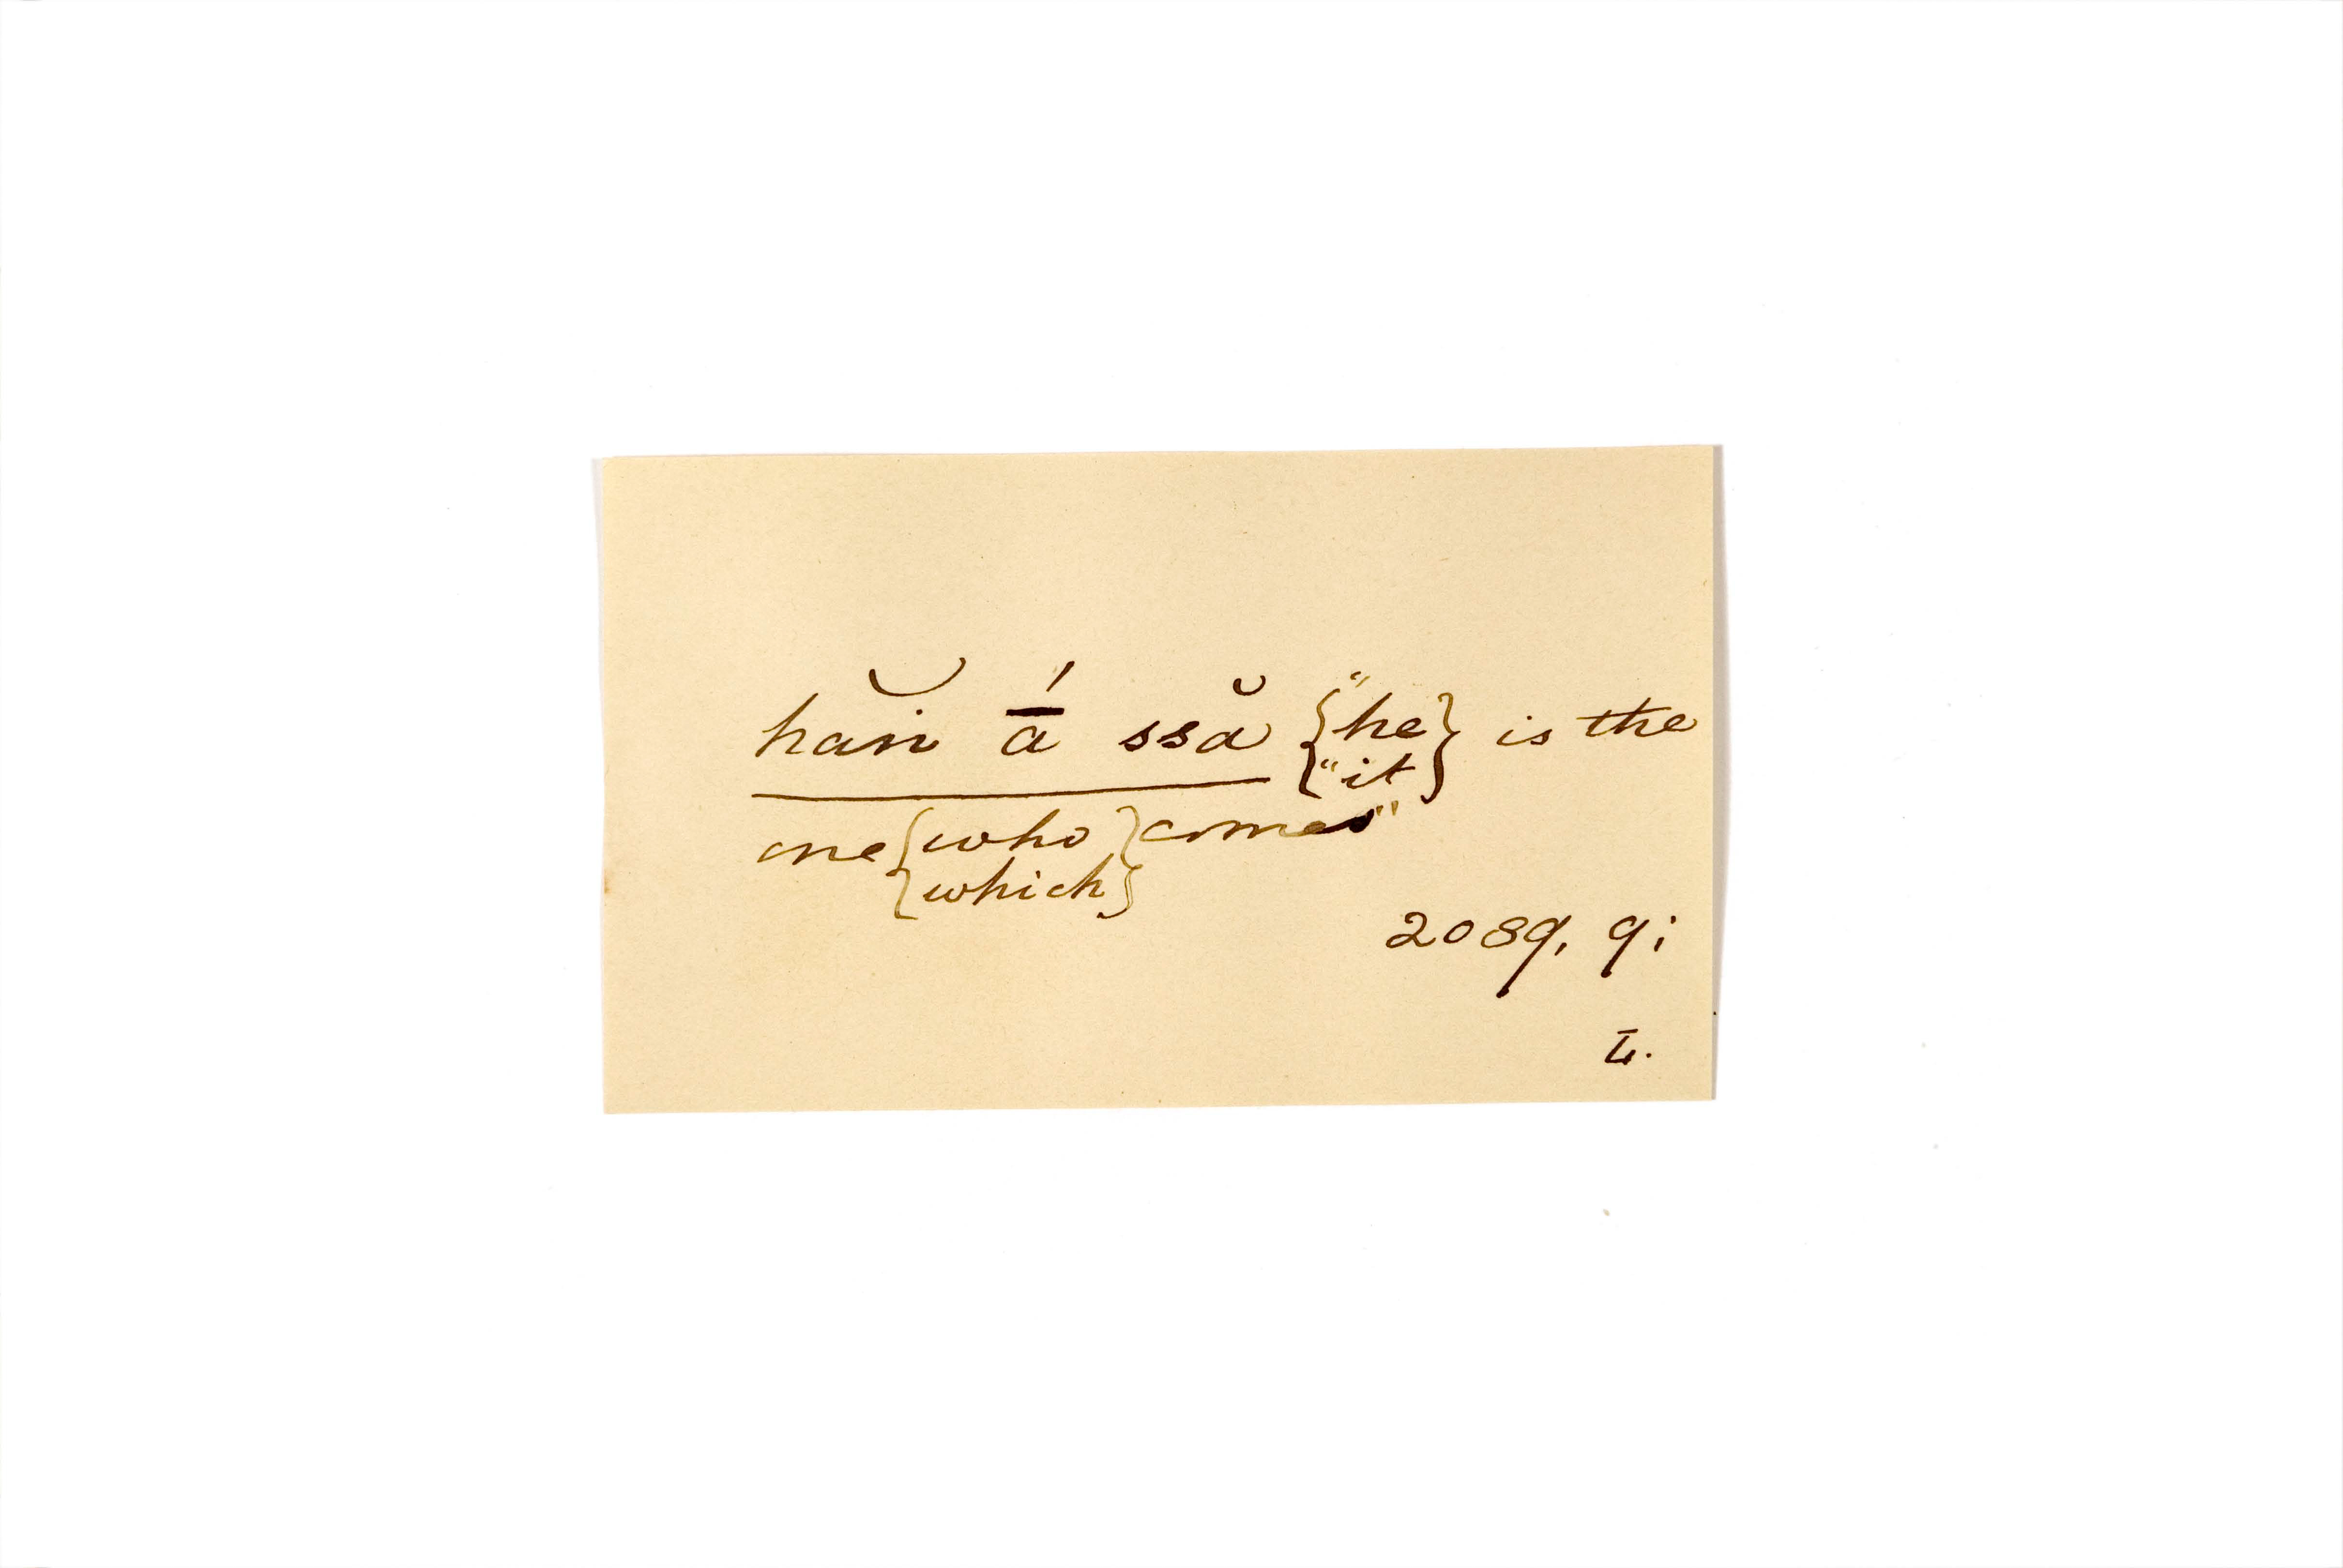 hăṅ ā́ ssă {"he} is the
{"it}
one {who} comes"
{which}
2089, 9;